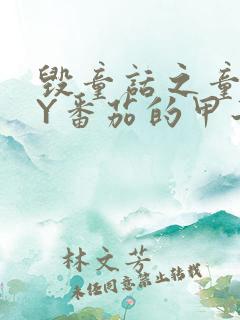 毁童话之童
Y番茄的甲
林文芳
未经同意禁止转载